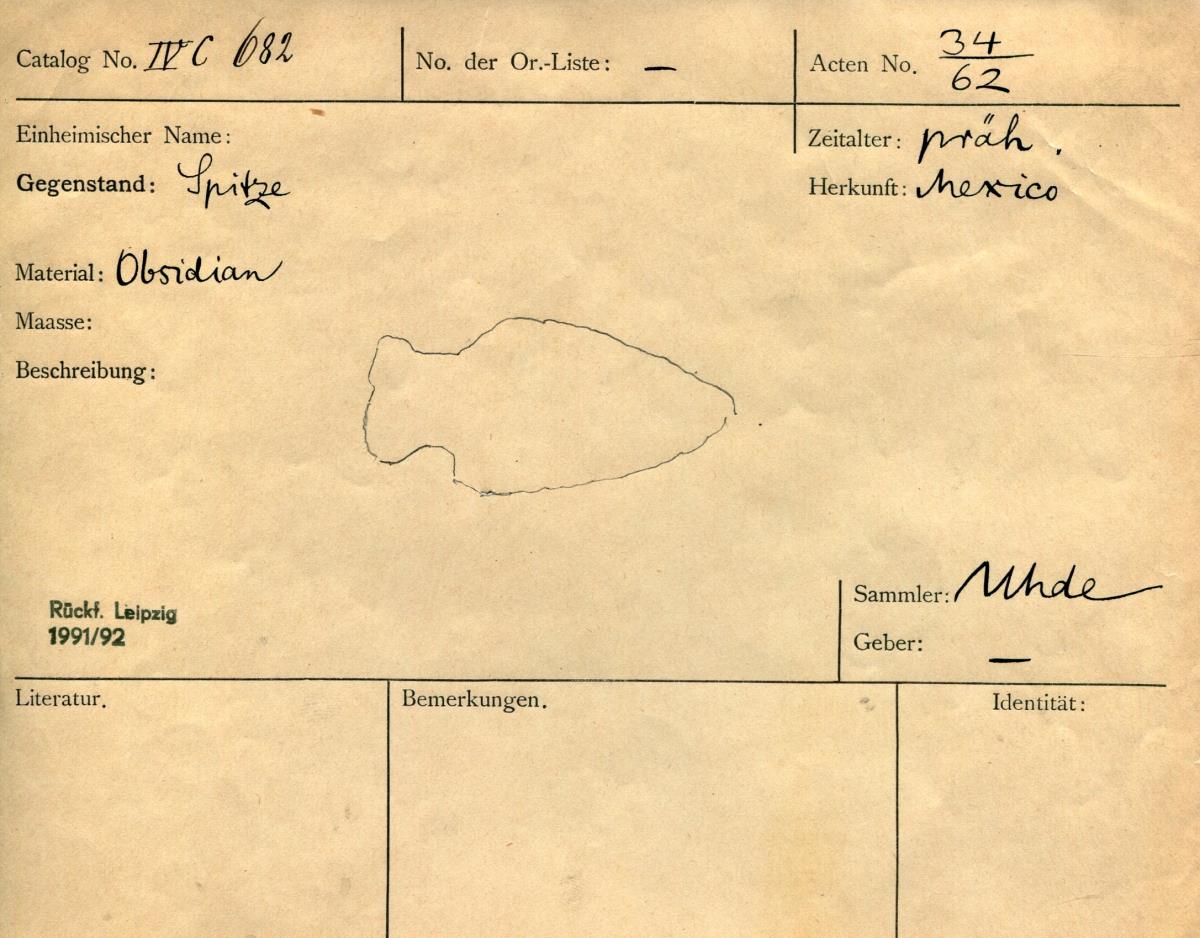 Catalog No. IV C 682
No. der Or.-Liste: —
Acten No. 34/62
Einheimischer Name:
Zeitalter: präh.
Gegenstand: Spitze
Herkunft: Mexico
Material: Obsidian
Maasse:
Beschreibung:
Rückf. Leipzig
1991/92
Sammler: Uhde
Geber: —
Literatur.
Bemerkungen.
Identität: